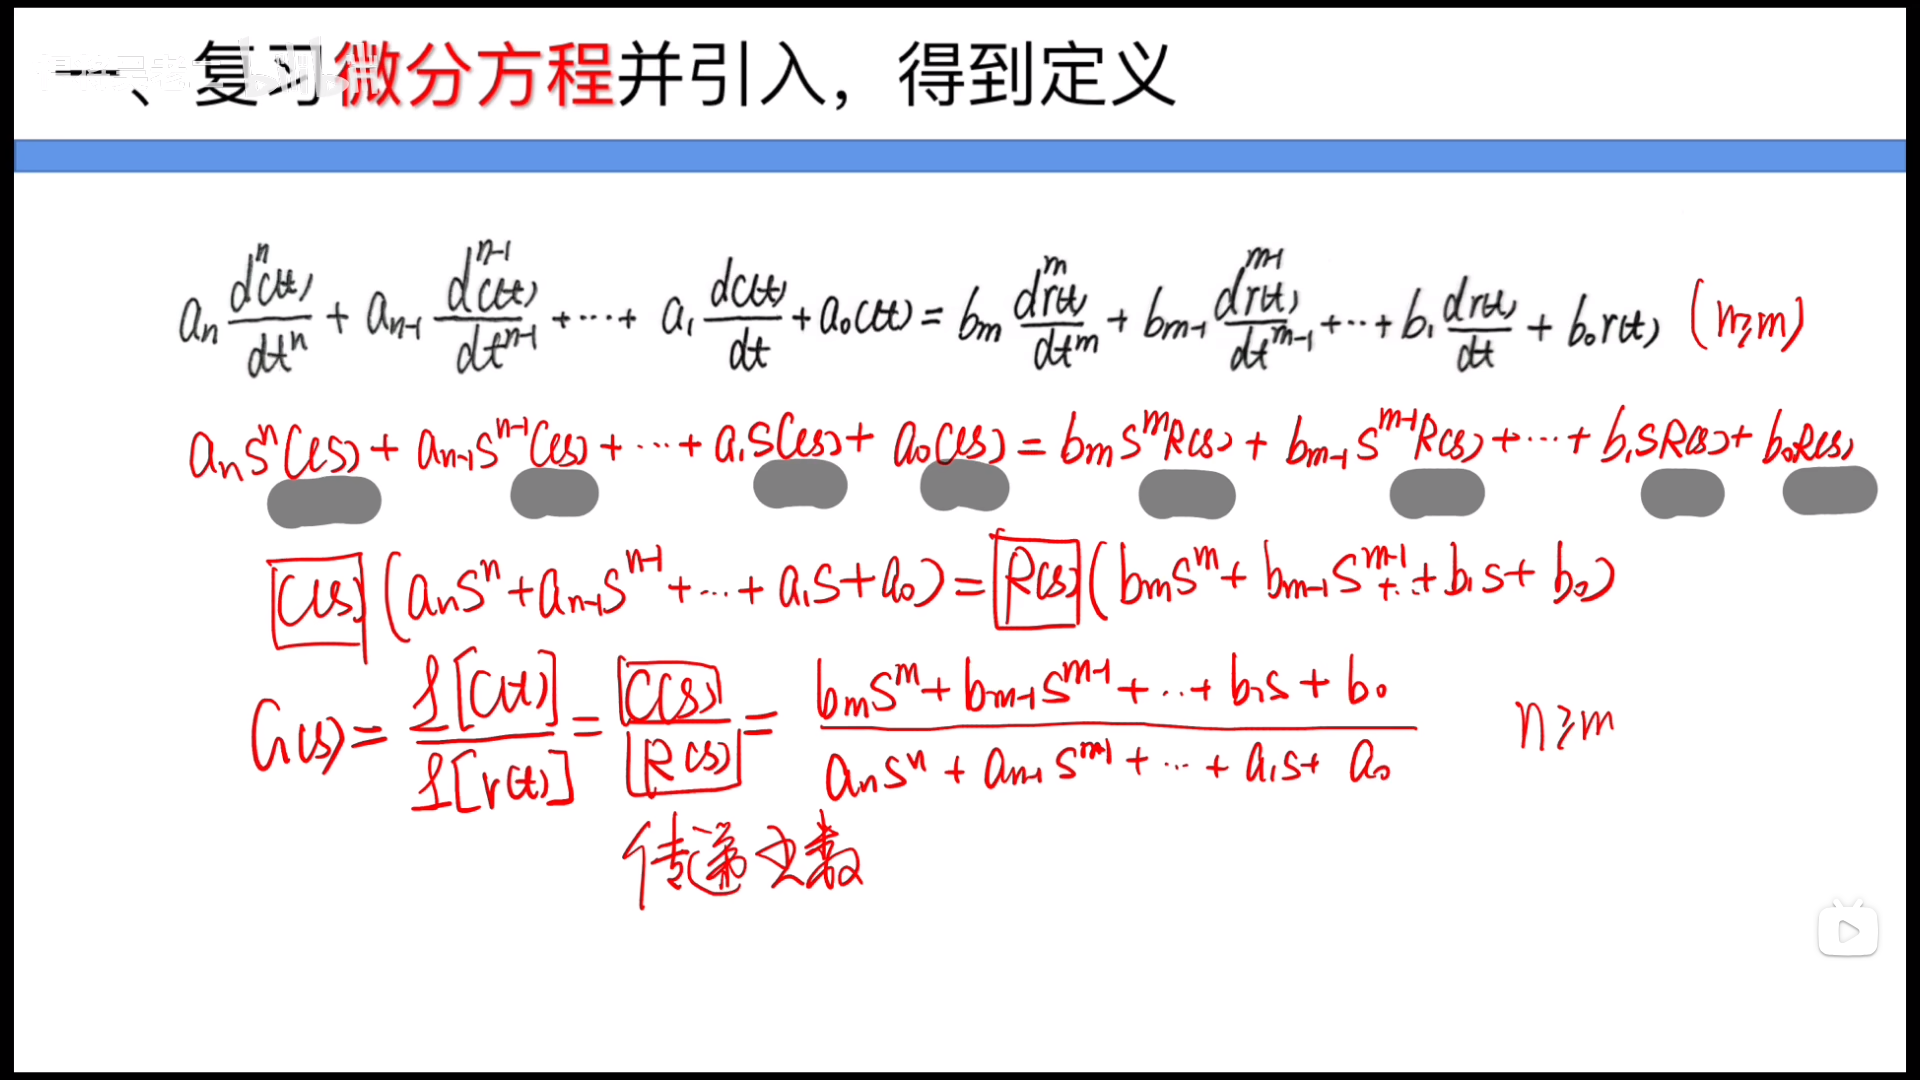 一、复习微分方程并引入，得到定义
aₙ dⁿc(t)/dtⁿ + aₙ₋₁ dⁿ⁻¹c(t)/dtⁿ⁻¹ + ··· + a₁ dc(t)/dt + a₀c(t) = bₘ dᵐr(t)/dtᵐ + bₘ₋₁ dᵐ⁻¹r(t)/dtᵐ⁻¹ + ··· + b₁ dr(t)/dt + b₀r(t) (n≥m)
aₙsⁿC(s) + aₙ₋₁sⁿ⁻¹C(s) + ··· + a₁sC(s) + a₀C(s) = bₘsᵐR(s) + bₘ₋₁sᵐ⁻¹R(s) + ··· + b₁sR(s) + b₀R(s)
C(s)(aₙsⁿ + aₙ₋₁sⁿ⁻¹ + ··· + a₁s + a₀) = R(s)(bₘsᵐ + bₘ₋₁sᵐ⁻¹ + ·· + b₁s + b₀)
G(s) = ℒ[c(t)]/ℒ[r(t)] = C(s)/R(s) = (bₘsᵐ + bₘ₋₁sᵐ⁻¹ + ··· + b₁s + b₀)/(aₙsⁿ + aₙ₋₁sᵐ⁻¹ + ··· + a₁s + a₀) n≥m
传递函数